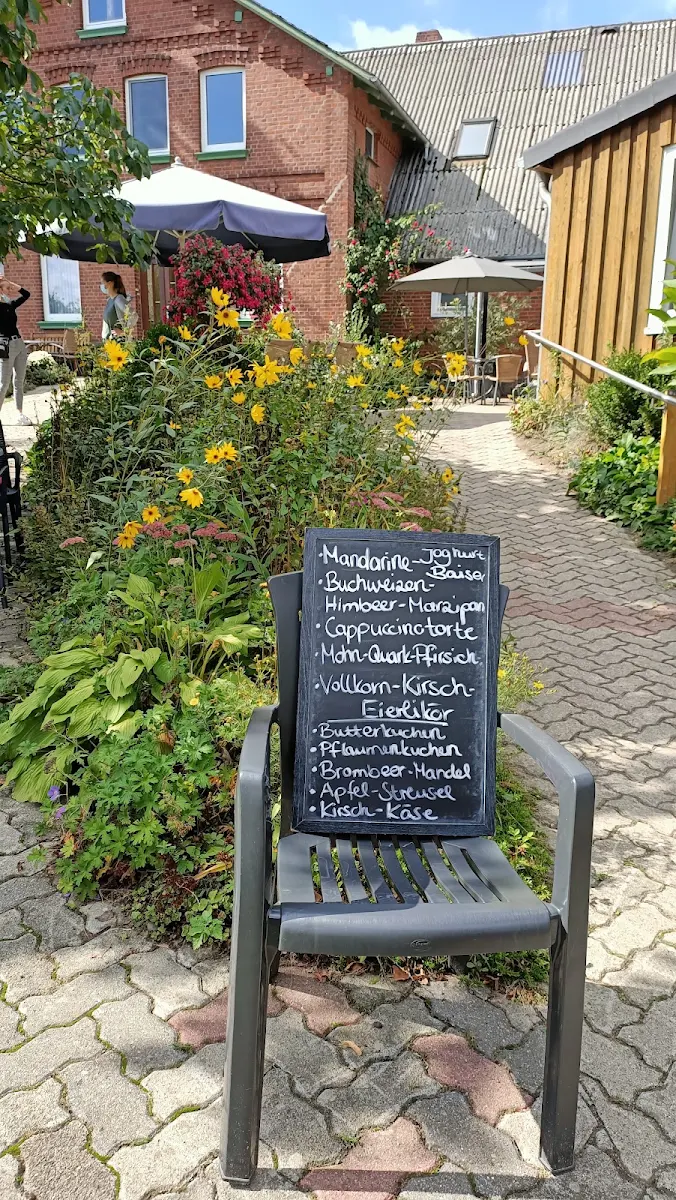 · Mandarine-Joghurt
Baiser
· Buchweizen-
Himbeer-Marzipan
· Cappuccinotorte
· Mohn-Quark-Pfirsich
· Vollkorn-Kirsch-
Eierlikör
· Butterkuchen
· Pflaumenkuchen
· Brombeer-Mandel
· Apfel-Streusel
· Kirsch-Käse